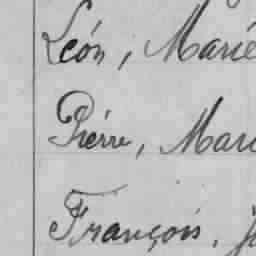 Léon, Marie
Piérre, Mari
François, J